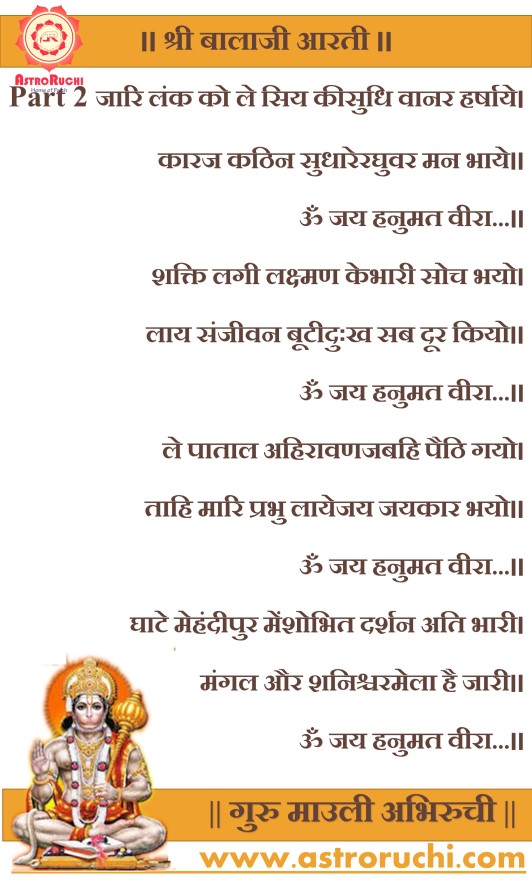 || श्री बालाजी आरती ||
ASTRORUCHI
Part 2 जारि लंक को ले सिय कीसुधि वानर हर्षाये।
कारज कठिन सुधारेरघुवर मन भाये॥
ॐ जय हनुमत वीरा...॥
शक्ति लगी लक्ष्मण केभारी सोच भयो।
लाय संजीवन बूटीदुःख सब दूर कियो॥
ॐ जय हनुमत वीरा...॥
ले पाताल अहिरावणजबहि पैठि गयो।
ताहि मारि प्रभु लायेजय जयकार भयो॥
ॐ जय हनुमत वीरा...॥
घाटे मेहंदीपुर मेंशोभित दर्शन अति भारी।
मंगल और शनिश्चरमेला है जारी॥
ॐ जय हनुमत वीरा...॥
|| गुरु माउली अभिरुची ||
www.astroruchi.com